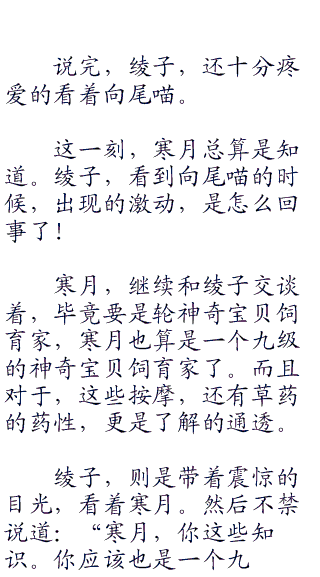 说完，绫子，还十分疼
爱的看着向尾喵。
这一刻，寒月总算是知
道。绫子，看到向尾喵的时
候，出现的激动，是怎么回
事了！
寒月，继续和绫子交谈
着，毕竟要是轮神奇宝贝饲
育家，寒月也算是一个九级
的神奇宝贝饲育家了。而且
对于，这些按摩，还有草药
的药性，更是了解的通透。
绫子，则是带着震惊的
目光，看着寒月。然后不禁
说道：“寒月，你这些知
识。你应该也是一个九